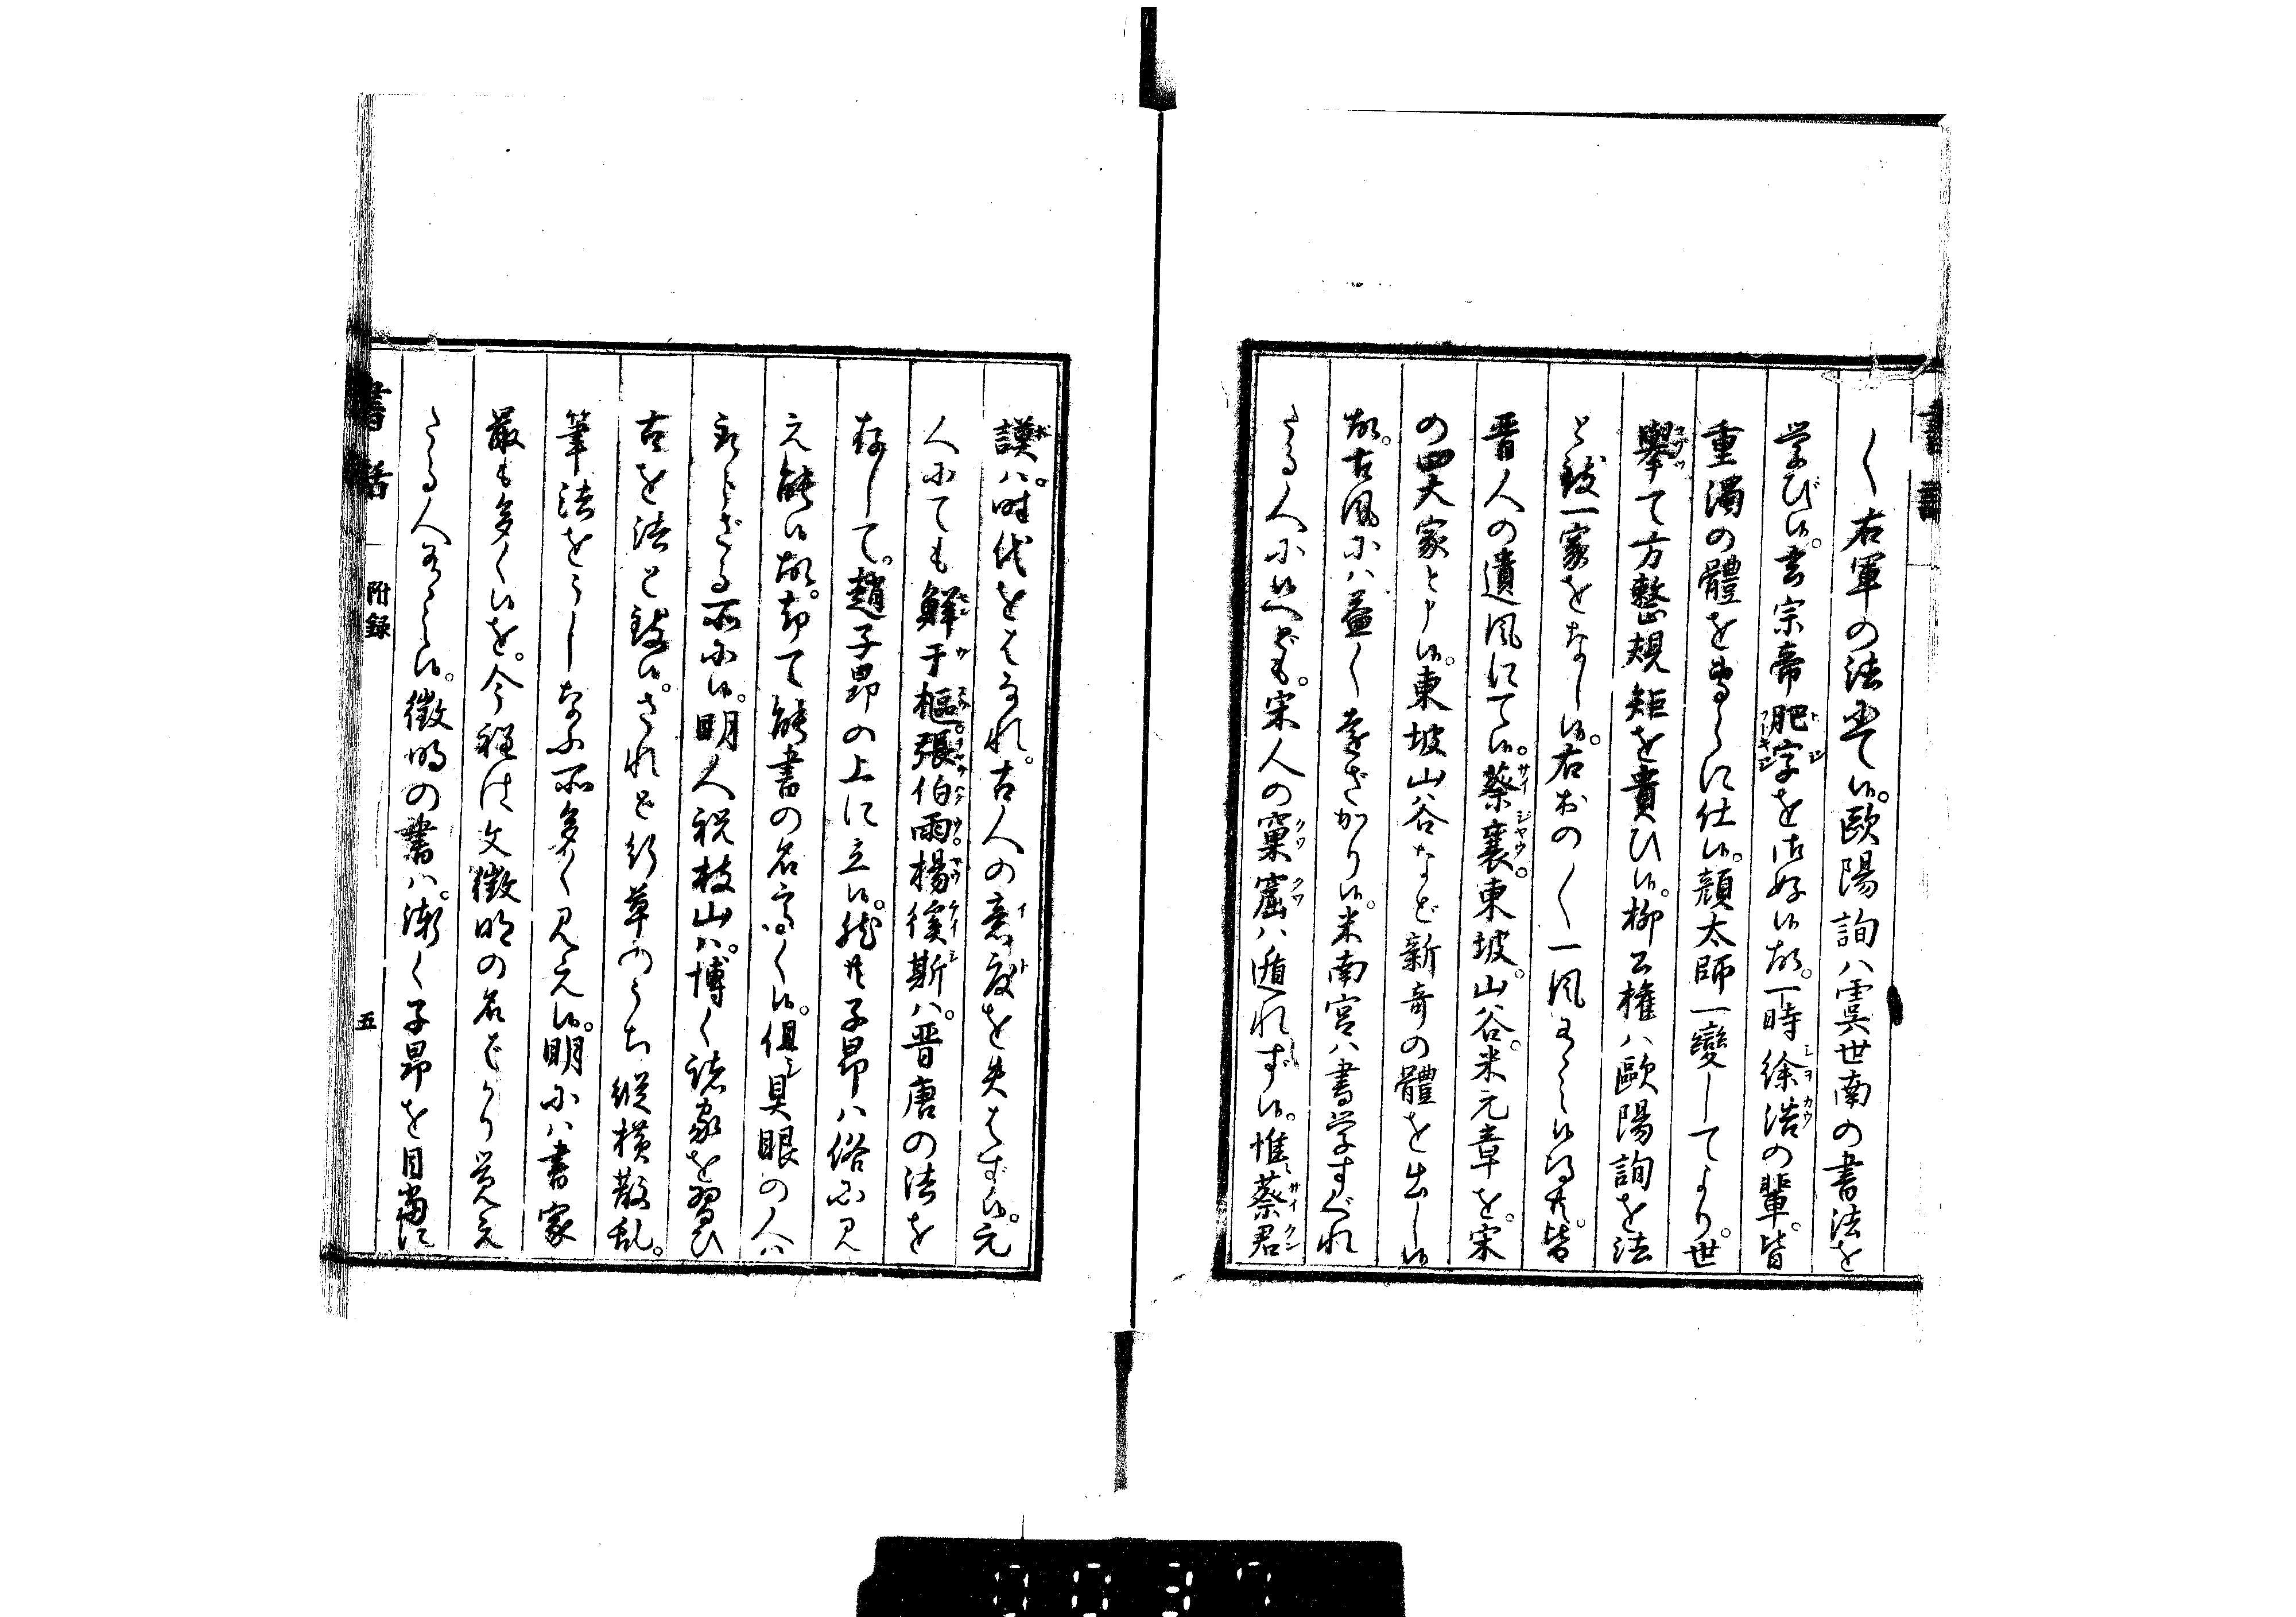 く右軍の法にて候。歐陽詢ハ虞世南の書法を
学び候。玄宗帝肥字を御好候故。一時徐浩の輩。皆
重濁の體を専らに仕候。顔太師一變してより。世
擧て方整規矩を貴ひ候。柳公權ハ歐陽詢を法
と致一家をなし候。右おの〱一風
晋人の遺風にて候。蔡襄。東坡。山谷。米元章を。宋
の四大家と申候。東坡山谷など新奇の體を出し候
故。古風にハ益〻遠ざかり候。米南宮ハ書学すぐれ
たる人に候へども。宋人の窠窟ハ遁れず候。惟蔡君
謨ハ。時代をはなれ。古人の意度を失はず候。元
人にても鮮于樞。張伯雨。楊徯斯ハ。晋唐の法を
存して。趙子昂の上に立候。然共子昂ハ俗に見
え能候故。却て能書の名高く候。但具眼の人ハ
取らざる所に候。明人祝枝山ハ。博く諸家を習ひ
古を法と致候。されど行草のうち縦横散乱。
筆法をうしなふ所多く見え候。明にハ書家
最も多く候を。今程は文徴明の名ばかり覚え
たる人有之候。徴明の書ハ。漸く子昂を目當に
書話
附録
五